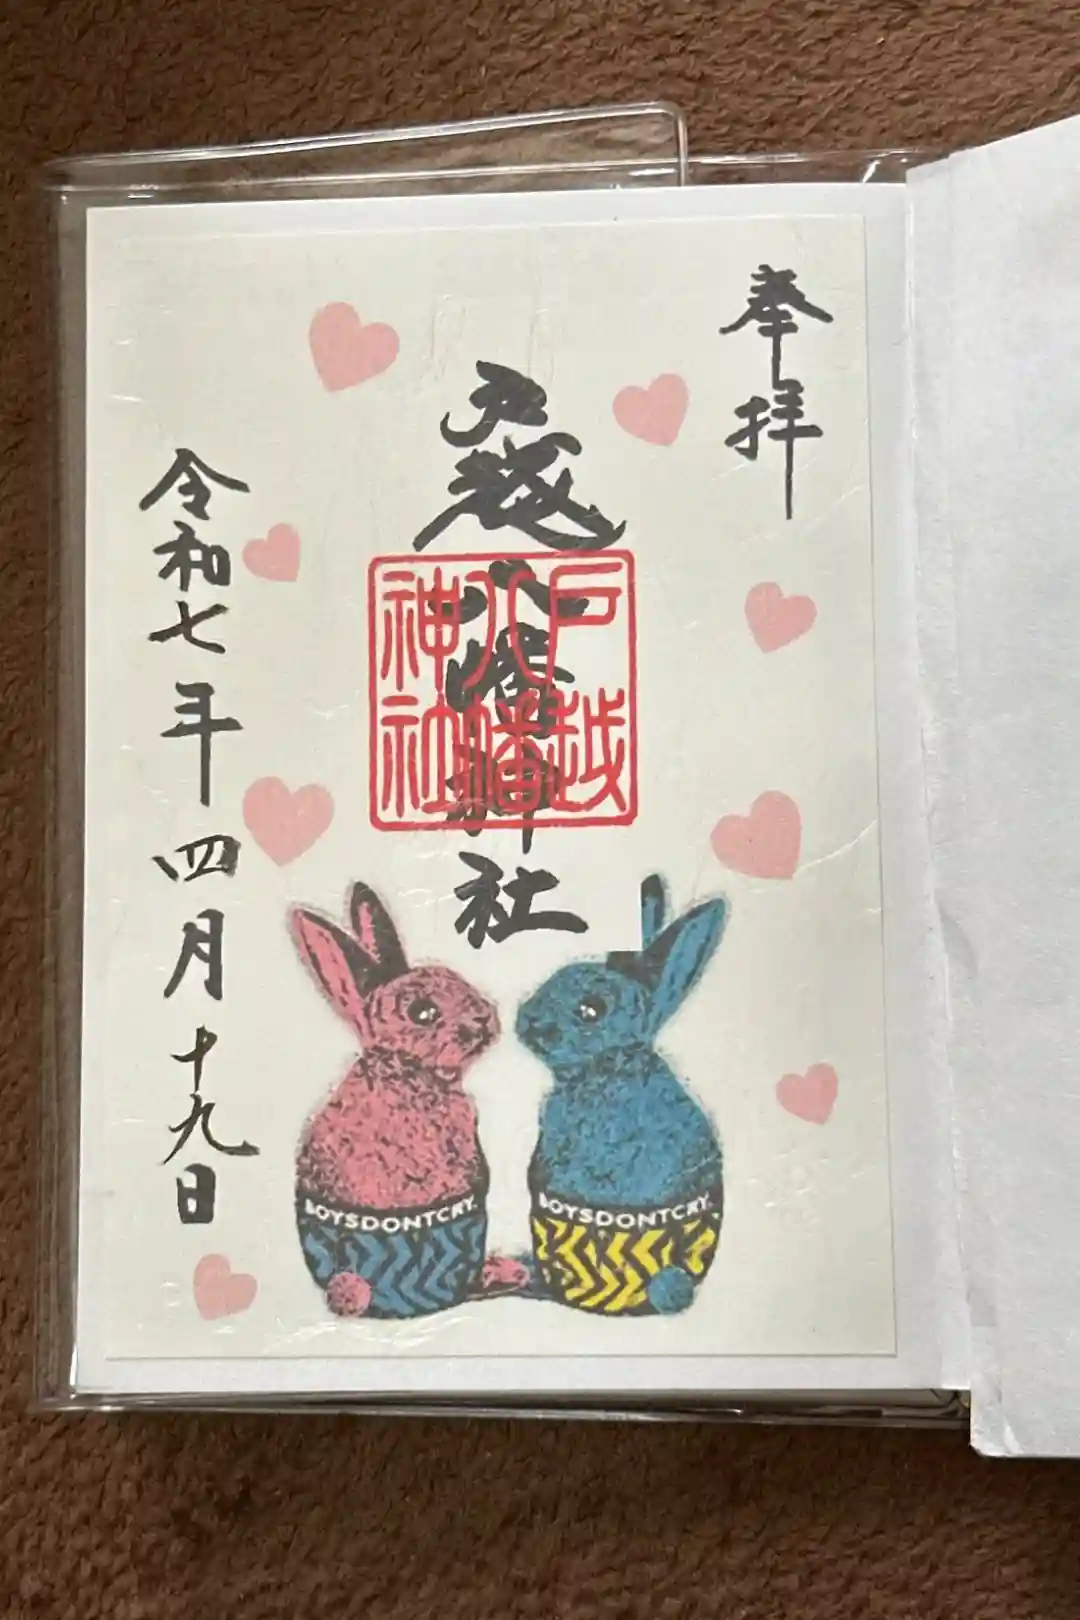 奉拝
戸越八幡神社
戸越
八幡
神社
令和七年四月十九日
BOYSDONTCRY.
BOYSDONTCRY.